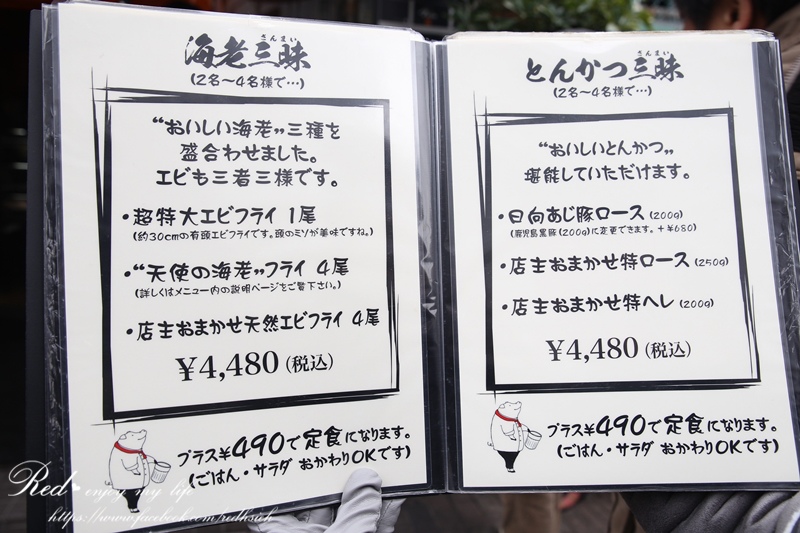 海老三昧
さんまい
(2名〜4名様で…)
“おいしい海老”三種を
盛合わせました。
エビも三者三様です。
・超特大エビフライ 1尾
(約30cmの有頭エビフライです。頭のミソが美味ですね。)
・“天使の海老”フライ 4尾
(詳しくはメニュー内の説明ページをご覧下さい。)
・店主おまかせ天然エビフライ 4尾
¥4,480 (税込)
プラス¥490で定食になります。
(ごはん・サラダ おかわりOKです)
とんかつ三昧
さんまい
(2名〜4名様で…)
“おいしいとんかつ”
堪能していただけます。
・日向あじ豚ロース (200g)
(鹿児島黒豚(200g)に変更できます。+¥680)
・店主おまかせ特ロース (250g)
・店主おまかせ特ヘレ (200g)
¥4,480 (税込)
プラス¥490で定食になります。
(ごはん・サラダ おかわりOKです)
Red enjoy my life
https://www.facebook.com/redhsieh